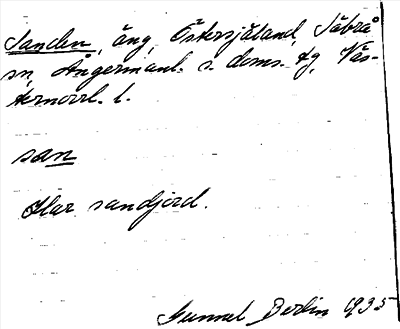 Sanden, äng, Östersjäland, Säbrå
sn, Ångermanl. s. doms. tg, Väs-
ternorrl. l.
san
Har sandjord.
Gunnel Berlin 1935